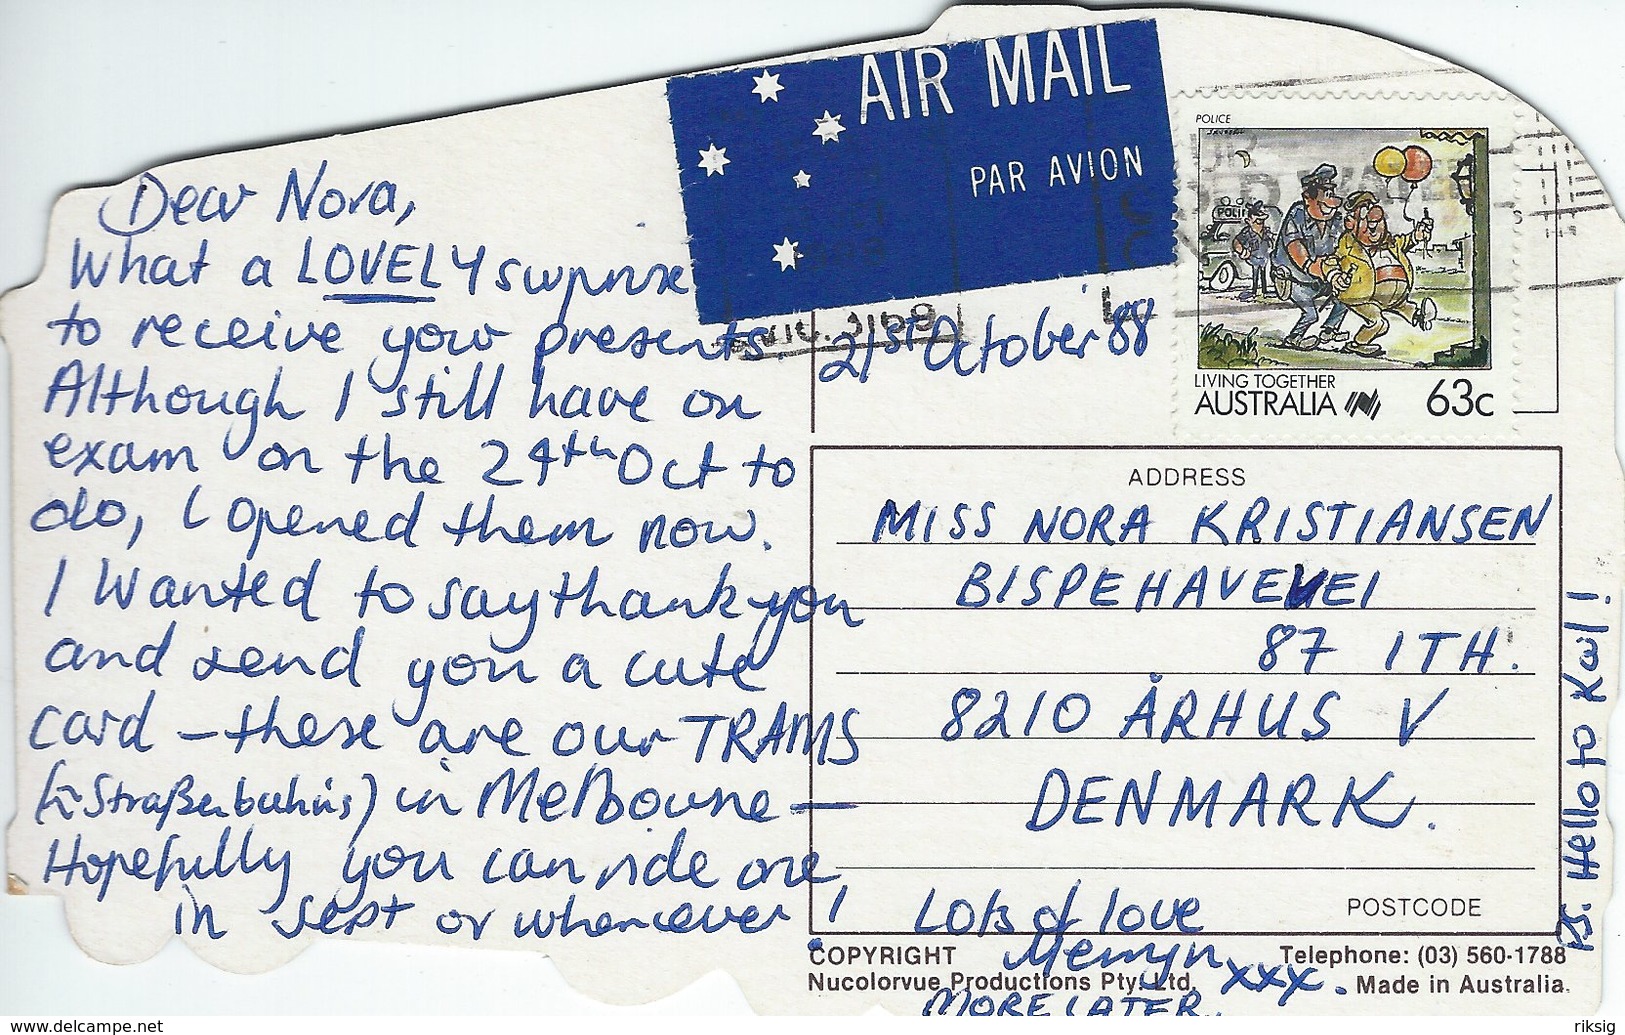 Dear Nora,
What a LOVELY surprise
to receive your presents.
Although I still have an
exam on the 24th Oct to
do, I opened them now.
I wanted to say thank you
and send you a cute
card – these are our TRAMS
in Melbourne –
Hopefully you can ride one
in Sept or whenever!
AIR MAIL
PAR AVION
21st October 88
POLICE
LIVING TOGETHER
AUSTRALIA
63c
ADDRESS
MISS NORA KRISTIANSEN
BISPEHAVEVEI
87 1TH.
8210 ÅRHUS V
DENMARK.
POSTCODE
Lots of love
Merryn
xxx.
MORE LATER.
PS. Hello to Karl!
COPYRIGHT
Nucolorvue Productions Pty. Ltd.
Telephone: (03) 560-1788
Made in Australia.
www.delcampe.net
riksig